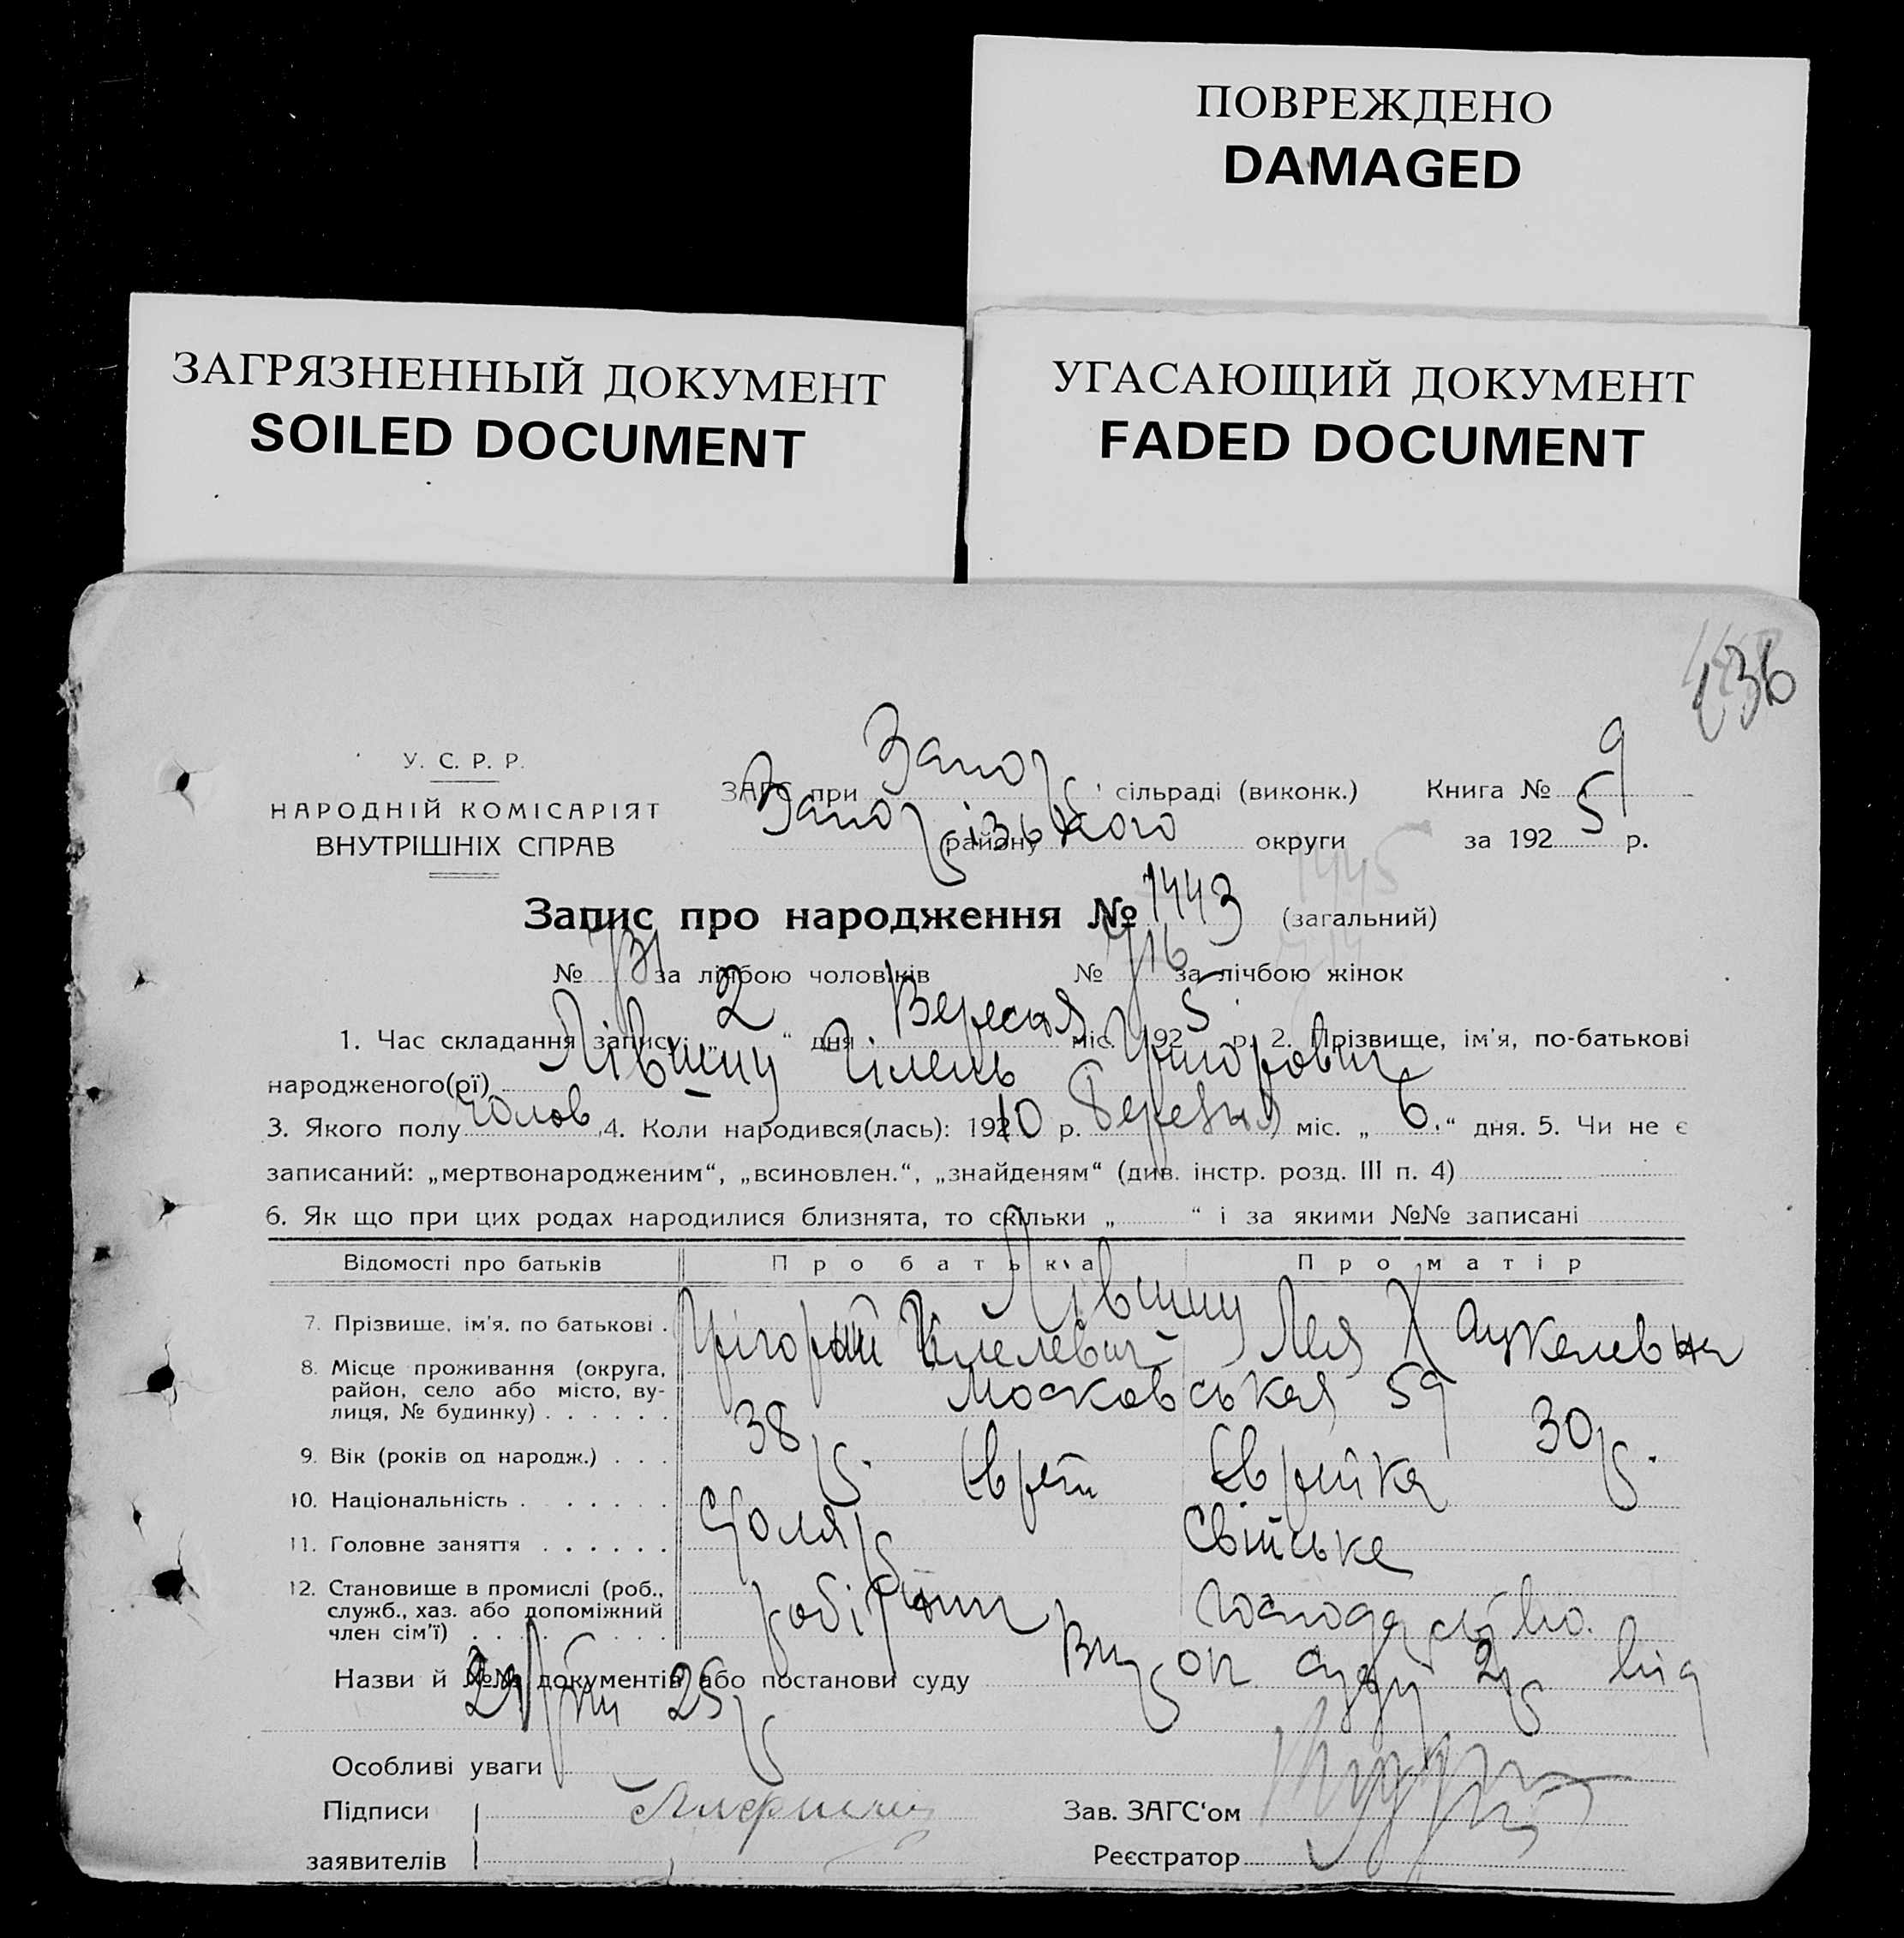 ПОВРЕЖДЕНО
DAMAGED
ЗАГРЯЗНЕННЫЙ ДОКУМЕНТ
SOILED DOCUMENT
УГАСАЮЩИЙ ДОКУМЕНТ
FADED DOCUMENT
136
У. С. Р. Р.
НАРОДНІЙ КОМІСАРІЯТ
ВНУТРІШНІХ СПРАВ
ЗАГС при Запор. сільраді (виконк.) Книга № 9
Запорізького району округи за 1925 р.
Запис про народження № 1443 (загальний)
№ 731 за лічбою чоловіків № 716 за лічбою жінок
1. Час складання запису: „2“ дня Вересня міс. 1925 р. 2. Прізвище, ім'я, по-батькові
народженого(рї) Лівшиц Гілель Григорович
3. Якого полу Чолов. 4. Коли народився(лась): 19210 р. Березня міс. „6.“ дня. 5. Чи не є
записаний: „мертвонародженим“, „всиновлен.“, „знайденям“ (див. інстр. розд. III п. 4)
6. Як що при цих родах народилися близнята, то скільки „ “ і за якими №№ записані
Відомості про батьків Про батька Про матір
Лівшиц
7. Прізвище, ім'я, по батькові . Григорий Гилелевич Лея Хацкелевна
8. Місце проживання (округа, район, село або місто, вулиця, № будинку) . . . . . . Московська 59
9. Вік (років од народж.) . . . 38 р. 30 р.
10. Національність . . . . . . Єврей Єврейка
11. Головне заняття . . . . . . Столяр Свійське
12. Становище в промислі (роб., служб., хаз. або допоміжний член сім'ї) . . . . . . . . . робітник господарство.
Назви й №№ документів або постанови суду суду від
25 р
Особливі уваги
Підписи
заявителів
Зав. ЗАГС'ом
Реєстратор